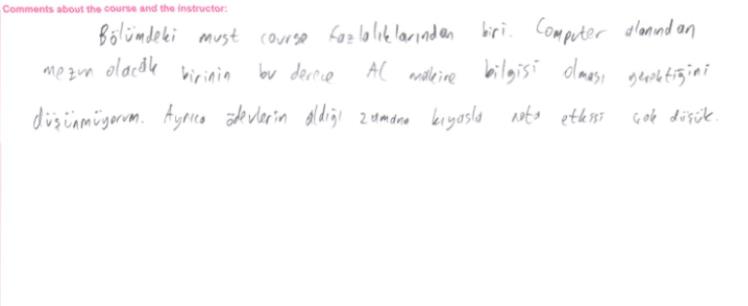 Comments about the course and the instructor:
Bölümdeki must course fazlalıklarından biri. Computer alanından
mezun olacak birinin bu derece AC makine bilgisi olması gerektiğini
düşünmüyorum. Ayrıca ödevlerin aldığı zamana kıyasla nota etkisi çok düşük.